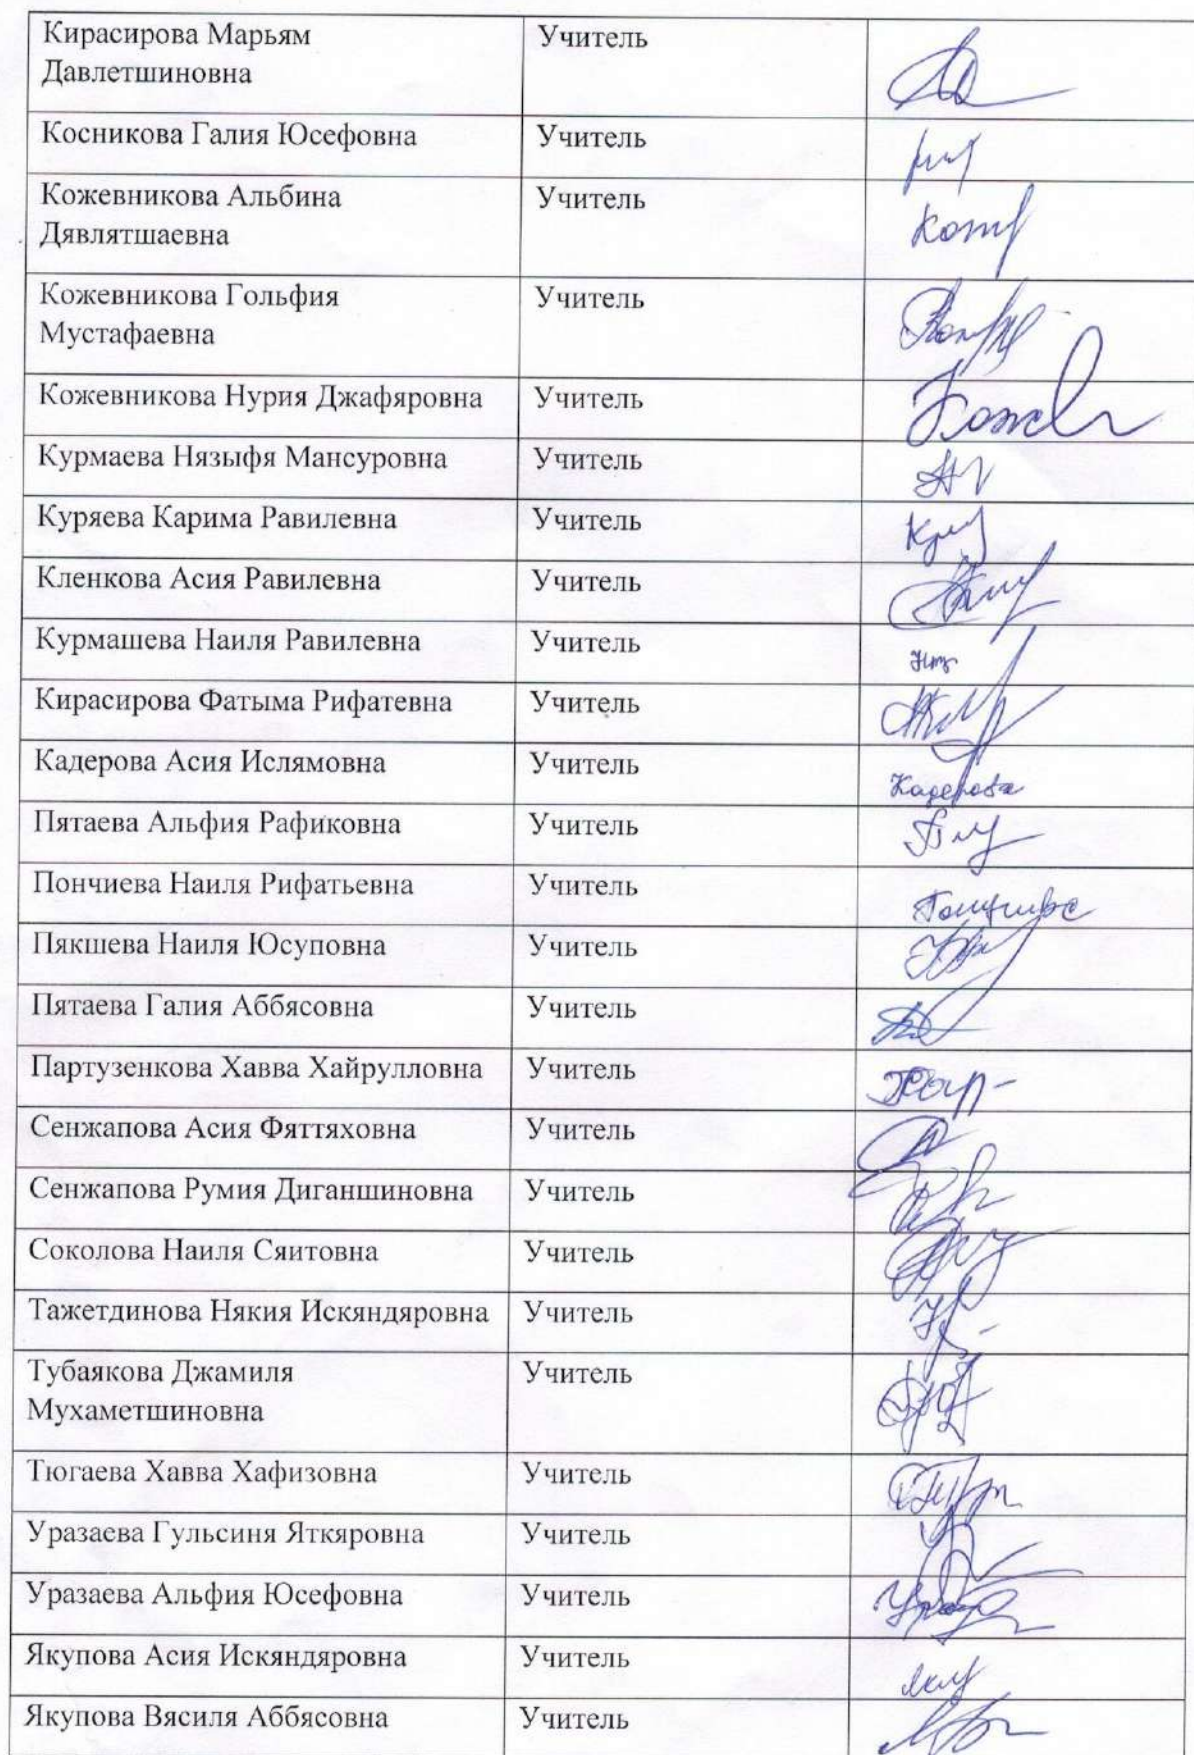 Кирасирова Марьям Учитель
Давлетшиновна
Косникова Галия Юсефовна Учитель
Кожевникова Альбина Учитель
Дявлятшаевна
Кожевникова Гольфия Учитель
Мустафаевна
Кожевникова Нурия Джафяровна Учитель
Курмаева Нязыфя Мансуровна Учитель
Куряева Карима Равилевна Учитель
Кленкова Асия Равилевна Учитель
Курмашева Наиля Равилевна Учитель
Кирасирова Фатыма Рифатевна Учитель
Кадерова Асия Ислямовна Учитель Кадерова
Пятаева Альфия Рафиковна Учитель
Пончиева Наиля Рифатьевна Учитель
Пякшева Наиля Юсуповна Учитель
Пятаева Галия Аббясовна Учитель
Партузенкова Хавва Хайрулловна Учитель
Сенжапова Асия Фяттяховна Учитель
Сенжапова Румия Диганшиновна Учитель
Соколова Наиля Сяитовна Учитель
Тажетдинова Някия Искяндяровна Учитель
Тубаякова Джамиля Учитель
Мухаметшиновна
Тюгаева Хавва Хафизовна Учитель
Уразаева Гульсиня Яткяровна Учитель
Уразаева Альфия Юсефовна Учитель
Якупова Асия Искяндяровна Учитель
Якупова Вясиля Аббясовна Учитель